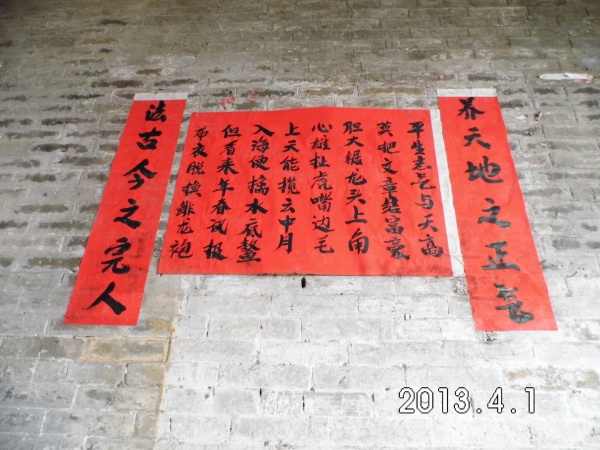 养天地之正氣
平生志气与天高
莫把文章结富豪
胆大锯龙头上角
心雄扯虎嘴边毛
上天能揽云中月
入海便擒水底鳌
但看来年春风极
布衣脱换绯龙袍
法古今之完人
2013.4.1